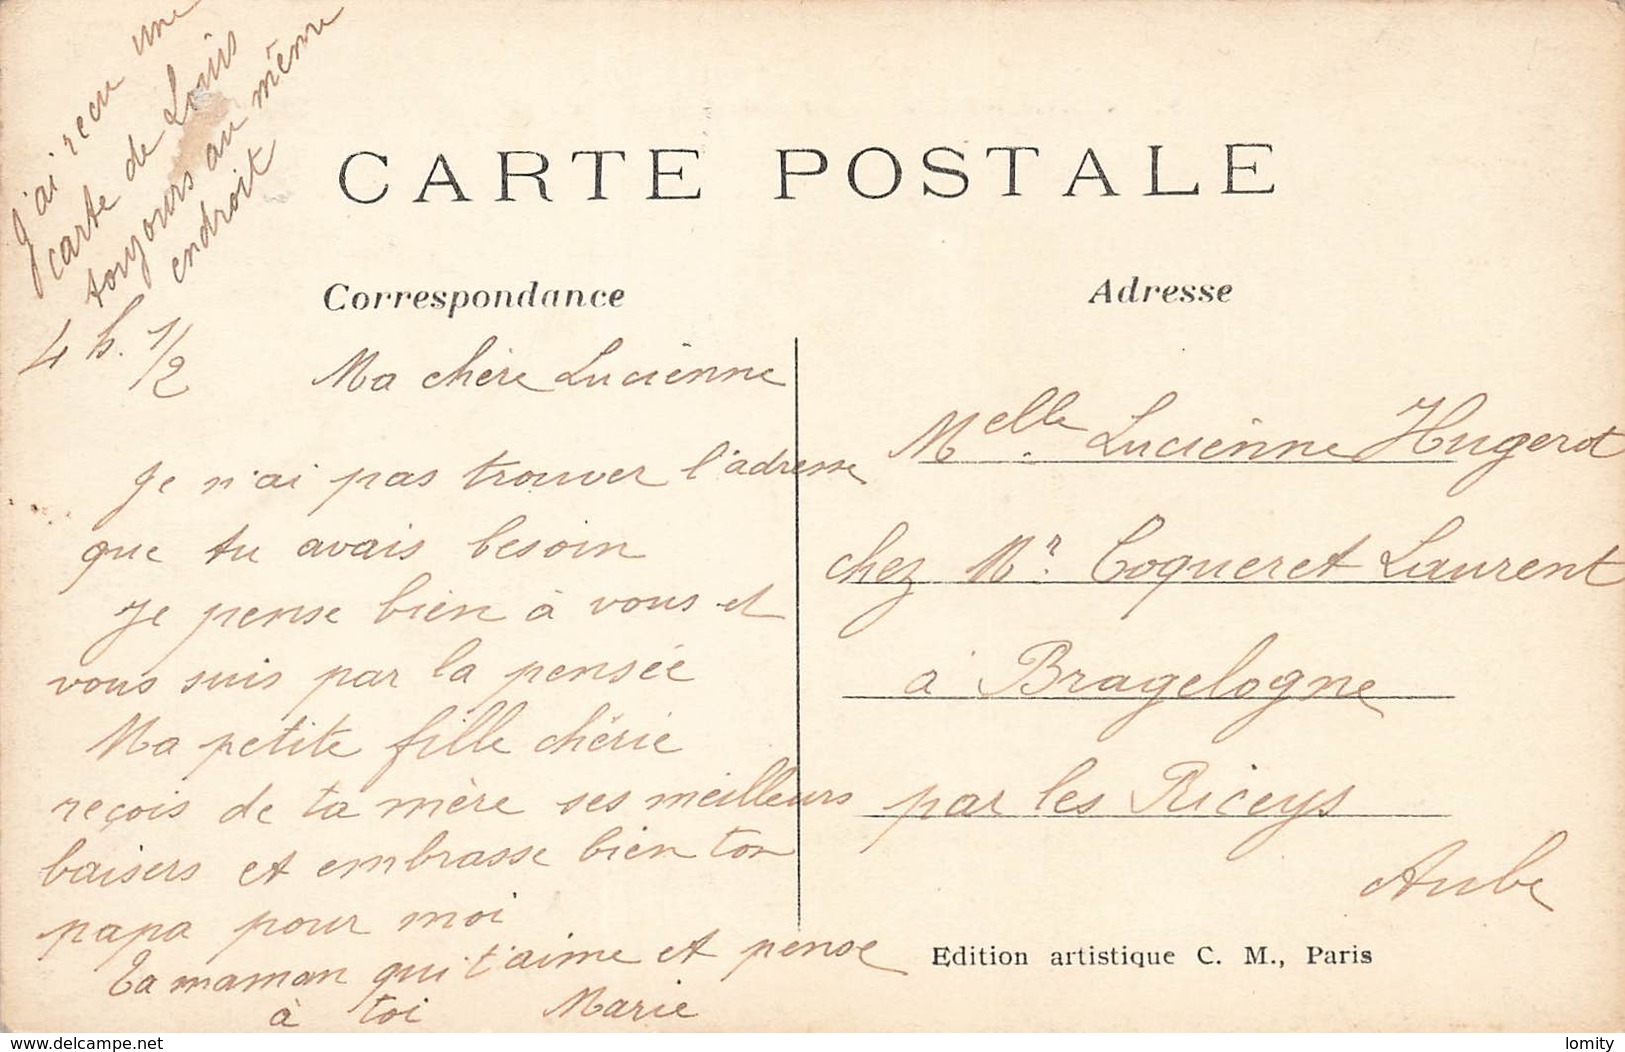 J'ai recu une
carte de Louis
toujours au même
endroit
4 h. 1/2
CARTE POSTALE
Correspondance
Adresse
Ma chère Luciènne
Je n'ai pas trouver l'adresse
que tu avais besoin
Je pense bien à vous et
vous suis par la pensée
Ma petite fille chérie
reçois de ta mère ses meilleurs
baisers et embrasse bien ton
papa pour moi
Ta maman qui t'aime et pense
à toi Marie
Melle. Luciènne Hugerot
chez Mr. Coqueret Laurent
à Bragelogne
par les Riceys
Aube
Edition artistique C. M., Paris
delcampe.net
lomity